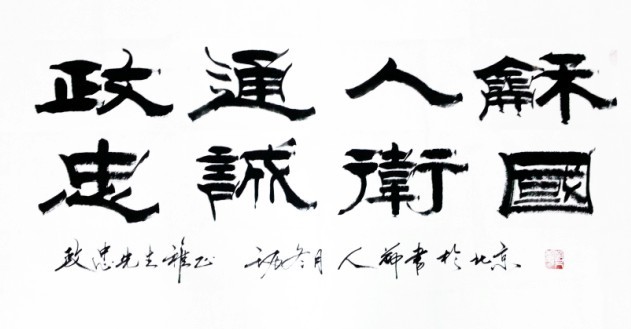 政通人龢
忠誠衛國
政忠先生雅正 冬月 人 書於北京